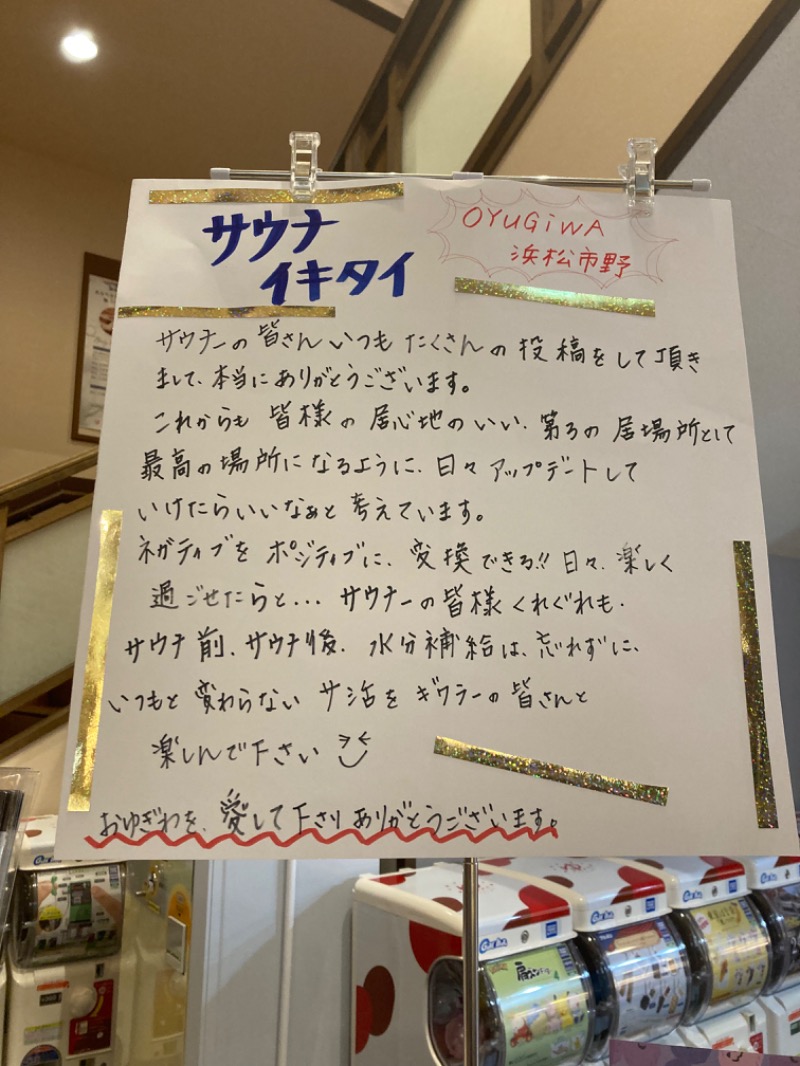 サウナ
イキタイ
OYUGiWA
浜松市野
サウナーの皆さんいつもたくさんの投稿をして頂き
まして、本当にありがとうございます。
これからも皆様の居心地のいい、第3の居場所として
最高の場所になるように、日々アップデートして
いけたらいいなぁと考えています。
ネガティブをポジティブに、変換できる!!日々、楽しく
過ごせたらと...サウナーの皆様くれぐれも、
サウナ前、サウナ後、水分補給は、忘れずに、
いつもと変わらないサ活をギワラーの皆さんと
楽しんで下さい
おゆぎわを、愛して下さりありがとうございます。